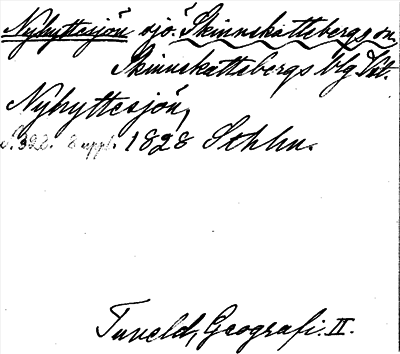 Nyhyttesjön sjö. Skinnskattebergs sn,
Skinnskattebergs blg Vstl.
Nyhyttesjön,
s. 322. 8 uppl. 1828 Sthlm.
Tuneld, Geografi. II.